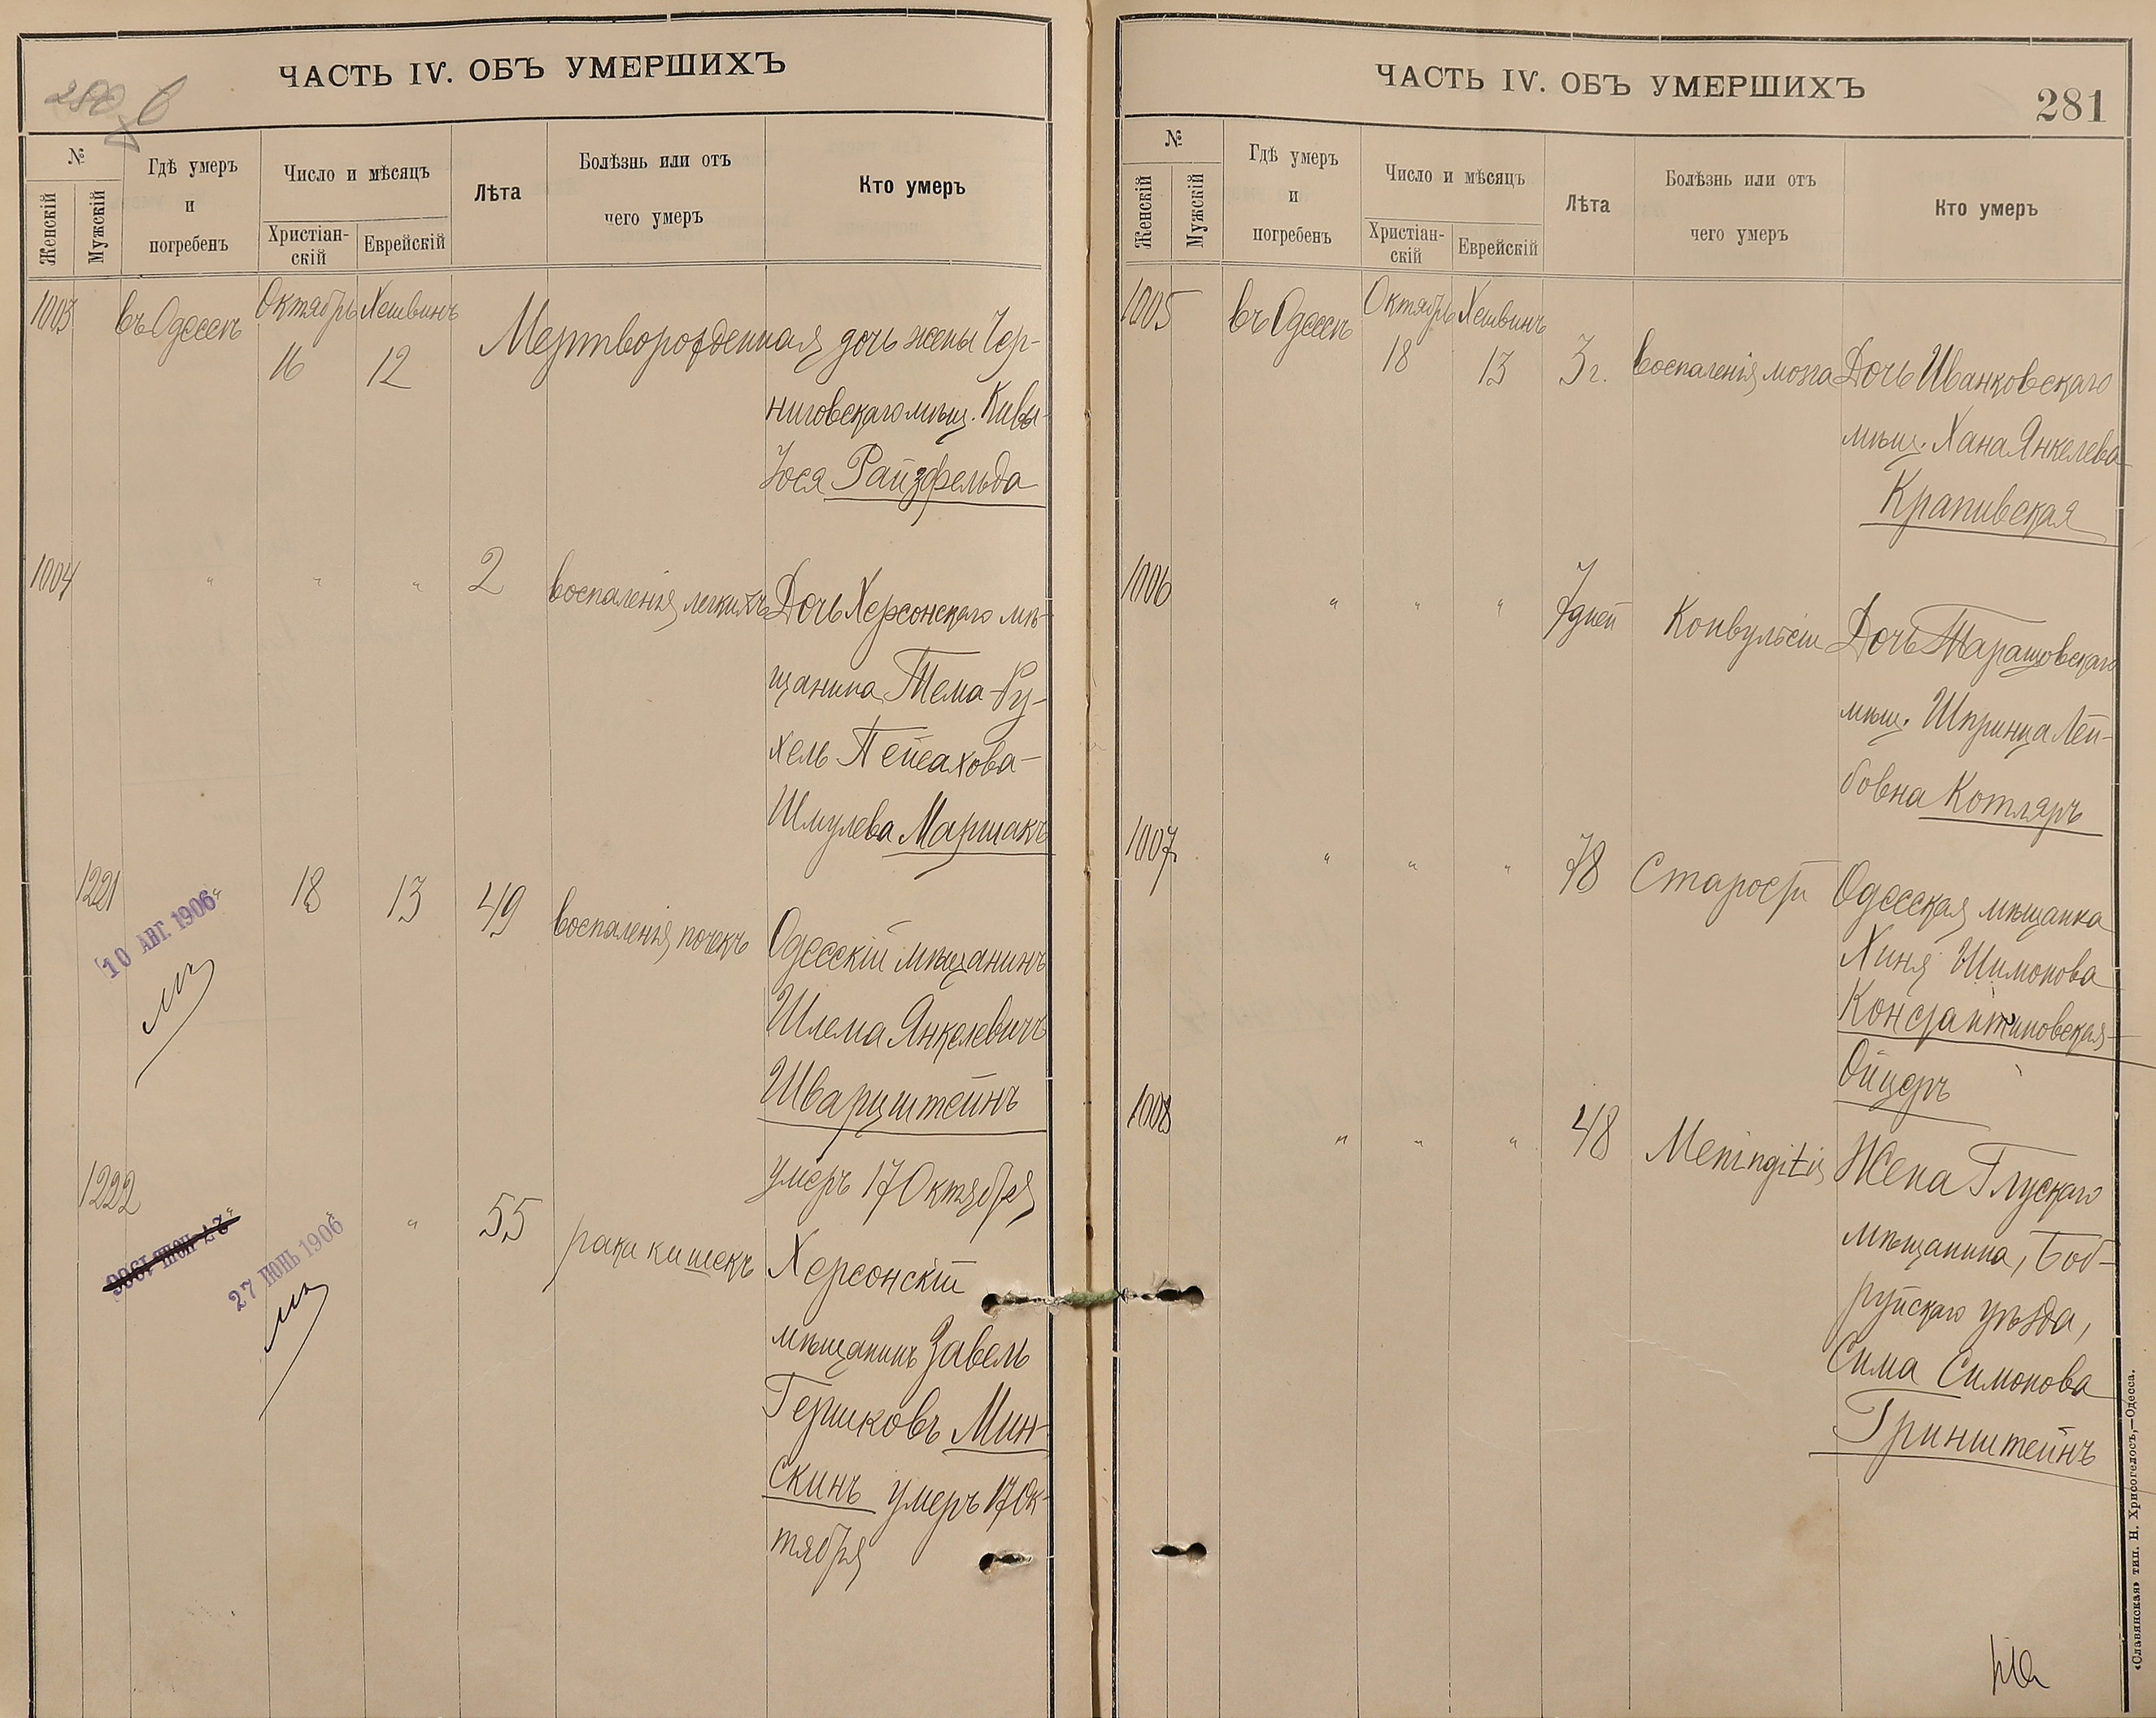 ЧАСТЬ IV. ОБЪ УМЕРШИХЪ
280
№
Женскій
Мужскій
Гдѣ умеръ
и
погребенъ
Число и мѣсяцъ
Христіан-
скій
Еврейскій
Лѣта
Болѣзнь или отъ
чего умеръ
Кто умеръ
1003
въ Одессѣ
Октябрь
16
Хешвинъ
12
Мертворожденная дочь жены Чер-
ниговскаго мѣщ. Кивы-
Іося Райзфельда
1004
" " "
2
воспаленія легкихъ
Дочь Херсонскаго мѣ-
щанина Тема-Ру-
хель Пейсахова-
Шмулева Маршакъ
1221
"
10 АВГ. 1906
18
13
49
воспаленія почекъ
Одесскій мѣщанинъ
Шлема Янкелевичъ
Шварцштейнъ
умеръ 17 Октября
1222
"
27 ІЮН 1906
27 ІЮНЬ 1906
" "
55
рака кишекъ
Херсонскій
мѣщанинъ Завель
Гершковъ Мин-
скинъ умеръ 17 Ок-
тября
ЧАСТЬ IV. ОБЪ УМЕРШИХЪ
281
№
Женскій
Мужскій
Гдѣ умеръ
и
погребенъ
Число и мѣсяцъ
Христіан-
скій
Еврейскій
Лѣта
Болѣзнь или отъ
чего умеръ
Кто умеръ
1005
въ Одессѣ
Октябрь
18
Хешвинъ
13
3 г.
воспаленія мозга
Дочь Иванковскаго
мѣщ. Хана Янкелева
Крапивская
1006
" " "
7 дней
Конвульсіи
Дочь Таращовскаго
мѣщ. Шпринца Лей-
бовна Котляръ
1007
" " "
78
Старости
Одесская мѣщанка
Хиня Шимонова
Константиновская-
Ойцеръ
1008
" " "
48
Meningitis
Жена Глускаго
мѣщанина, Боб-
руйскаго уѣзда,
Сима Симонова
Гринштейнъ
«Славянская» тип. Н. Хрисогелосъ,—Одесса.